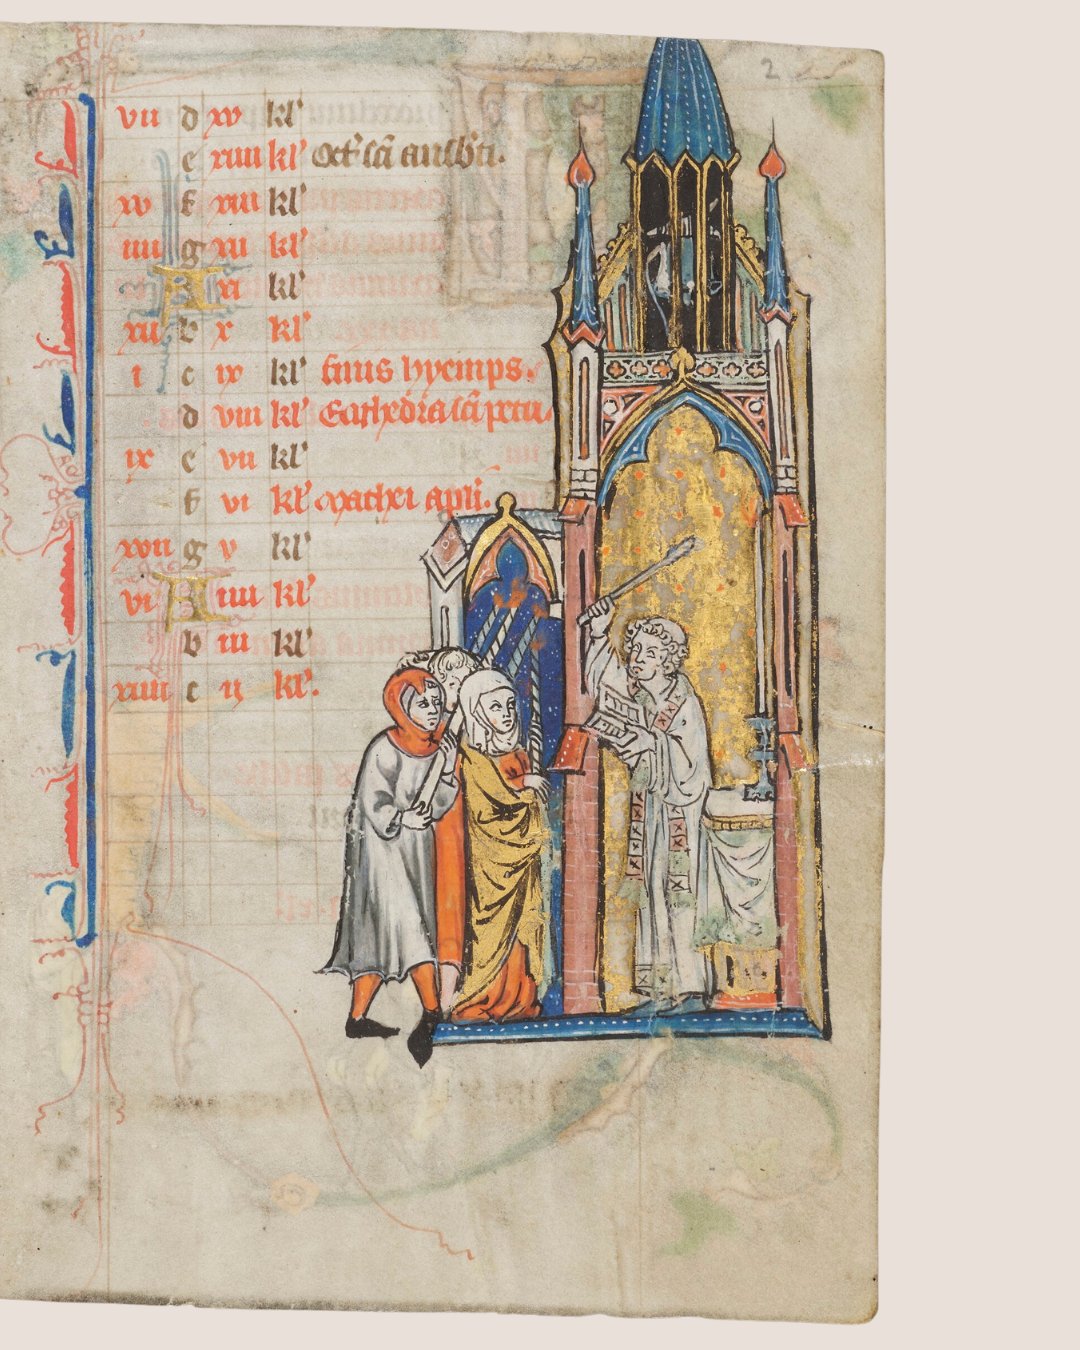 2
vii d xv kl'
e xiiii kl' Oct' sci
xv f xiii kl'
iiii g xii kl'
A xi kl'
xii b x kl'
i c ix kl' finis hyemps.
d viii kl' Cathedra sci petri
ix e vii kl'
f vi kl' Mathei apli.
xvii g v kl'
vi A iiii kl'
b iii kl'
xiiii c ij kl'.